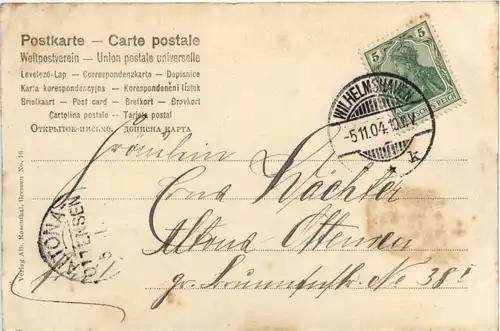 Postkarte – Carte postale
Weltpostverein – Union postale universelle
Levelező-Lap – Correspondenzkarte – Dopisnice
Karta korespondencyjna – Korespondenční lístek
Briefkaart – Post card – Brefkort – Brevkort
Cartolina postale – Tarjeta postal
Открытое-письмо. дописна карта
5 5
WILHELMSHAVEN
-5.11.04.10
* k
Fräulein
Erna Wächter
Altona Ottensen
gr. Brunnenstr. No 38
ALTONA
OTTENSEN
Verlag Alb. Rosenthal, Bremen No. 16